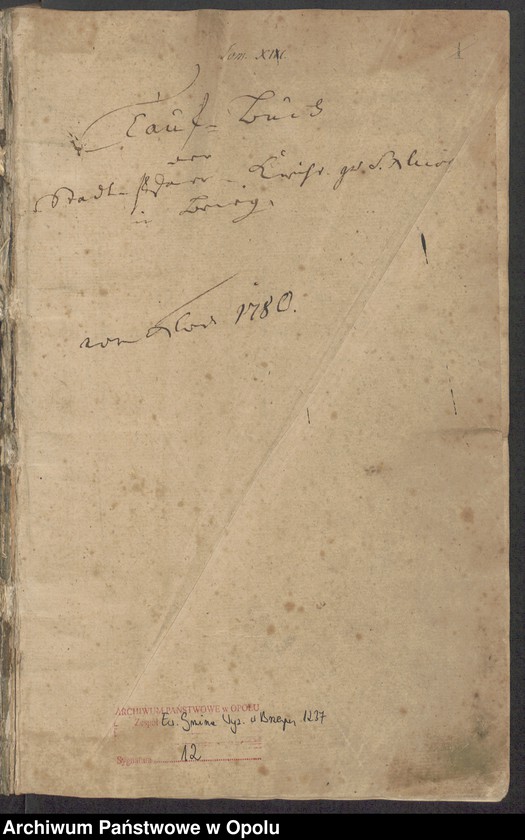 Tom. XIII.
1
Tauf-Buch
der
Stadt-Pfarr-Kirche zu St. Nicolai
in Brieg.
vom Jahr 1780.
ARCHIWUM PAŃSTWOWE w OPOLU
Zespół Ew. Gmina Wyz. w Brzegu 1237
Sygnatura 12
Archiwum Państwowe w Opolu